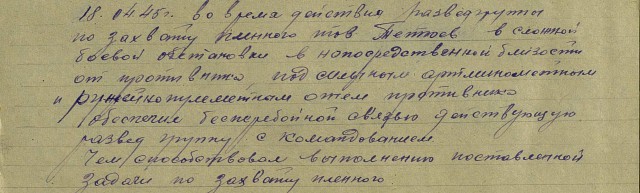 18.04.45г. во время действия разведгруппы
по захвату пленного тов Теттоев в сложной
боевой обстановки в непосредственной близости
от противника под сильным артминометным
и ружейнопулеметным огнем противника
обеспечил бесперебойной связью действующую
развед группу с командованием.
Чем способствовал выполнению поставленной
задачи по захвату пленного.